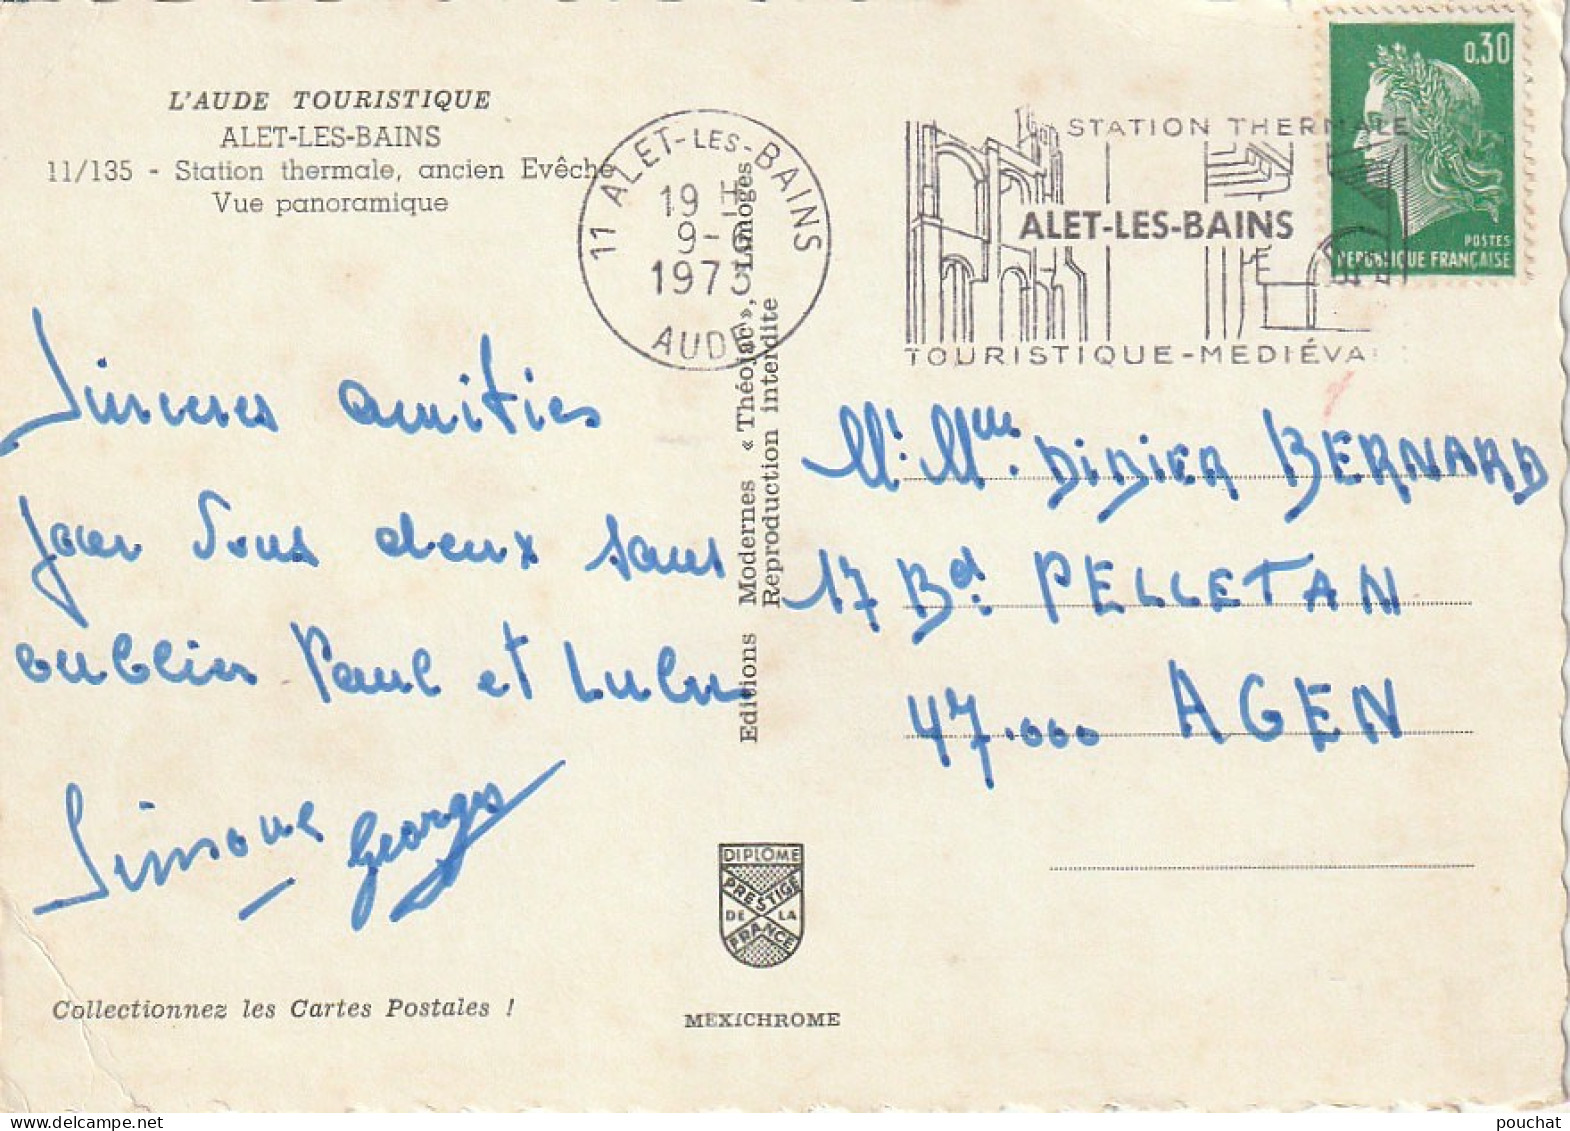 L'AUDE TOURISTIQUE
ALET-LES-BAINS
11/135 - Station thermale, ancien Evêché
Vue panoramique
11 ALET-LES-BAINS
19 H
9-
1973
AUDE
STATION THERMALE
ALET-LES-BAINS
TOURISTIQUE-MEDIÉVA
0,30
POSTES
REPUBLIQUE FRANÇAISE
Sinceres amitiés
pour vous deux sans
oublier Paul et Lulu
Simone Georges
Editions Modernes « Théojac », Limoges
Reproduction interdite
Mr. Mme. DIDIER BERNARD
17 Bd. PELLETAN
47.000 AGEN
DIPLÔME
PRESTIGE
DE LA
FRANCE
Collectionnez les Cartes Postales !
MEXICHROME
pouchat